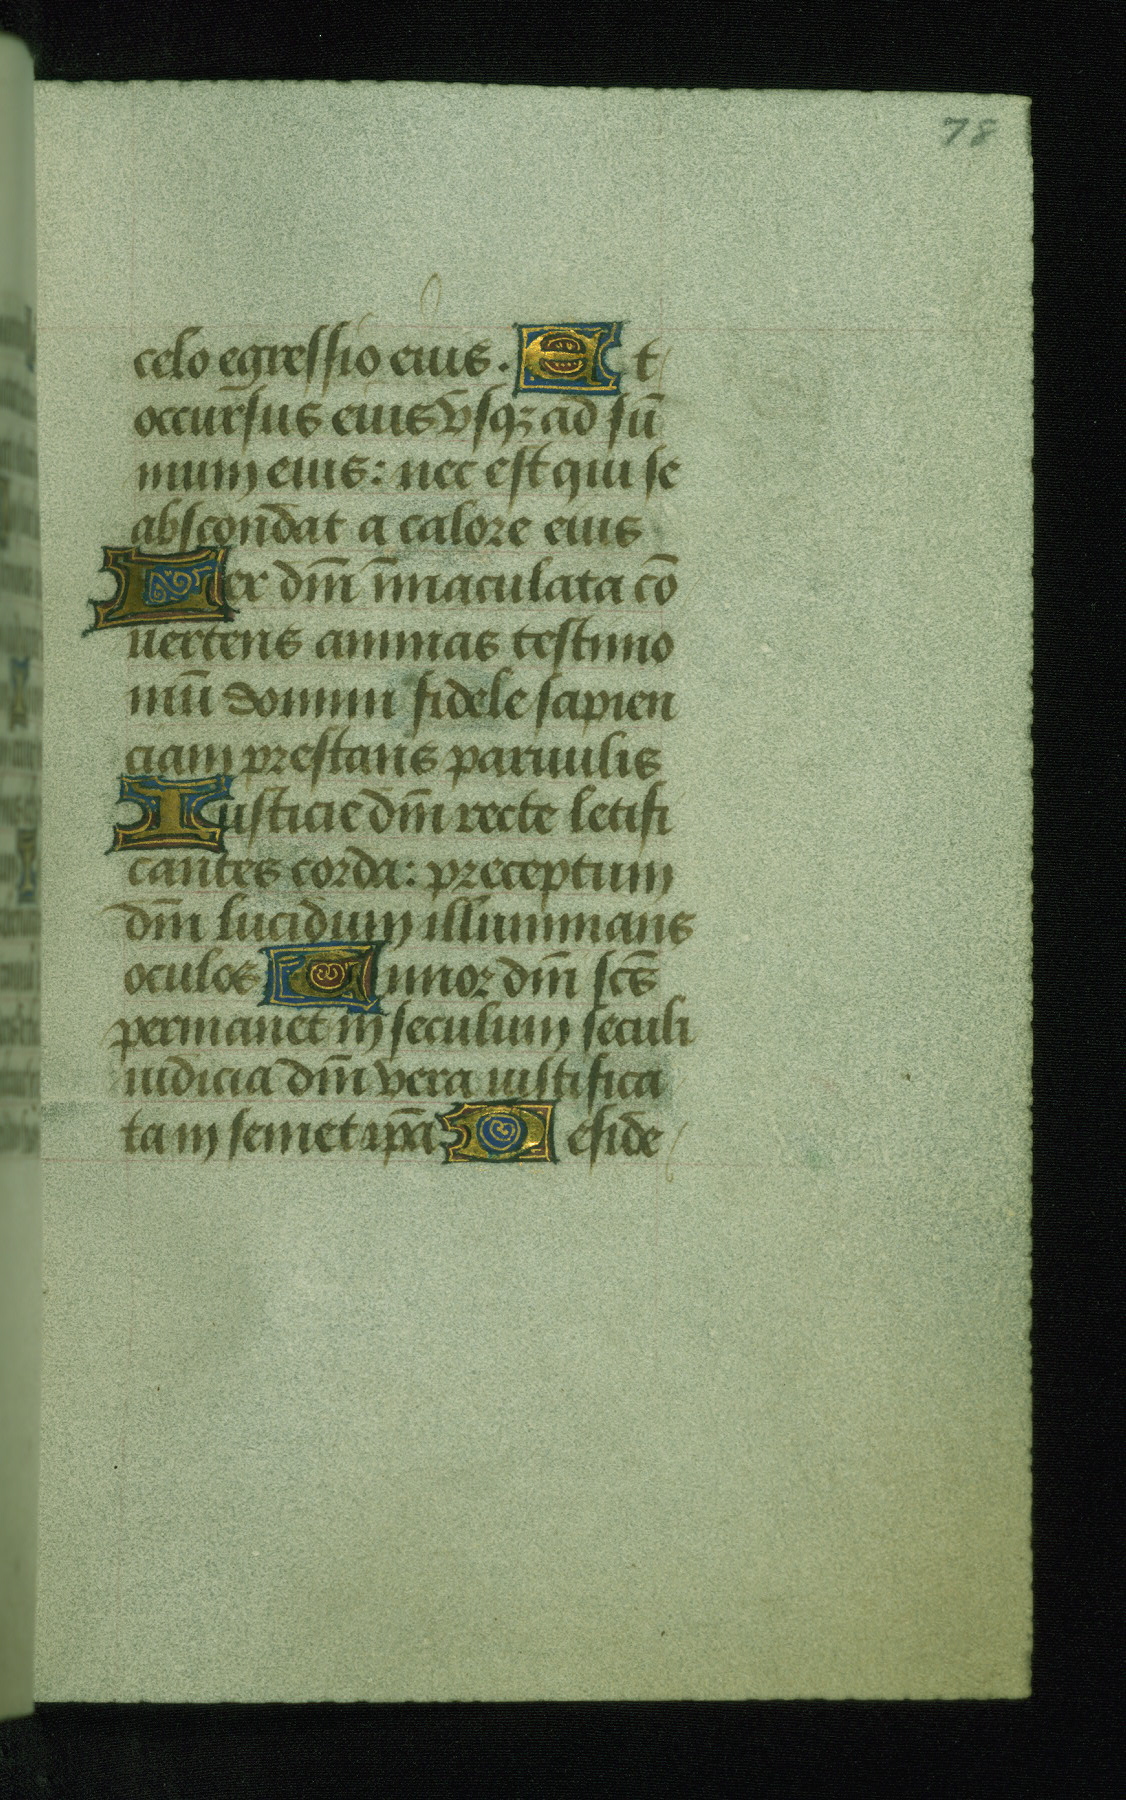 78
celo egressio eius. Et
occursus eius vsqꝫ ad sū
mum eius: nec est qui se
abscondat a calore eius
Lex dn̄i īmaculata cō
uertens animas testimo
niū domini fidele sapien
ciam prestans paruulis
Iusticie dn̄i recte letifi
cantes corda: preceptum
dn̄i lucidum illuminans
oculos Timor dn̄i scs̄
permanet in seculum seculi
iudicia dn̄i vera iustifica
ta in semetip̄a Deside